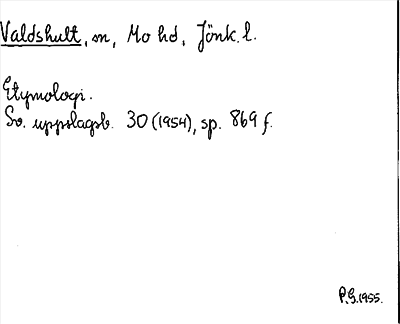 Valdshult, sn, Mo hd, Jönk. l.
Etymologi.
Sv. uppslagsb. 30 (1954), sp. 869 f.
P.G. 1955.